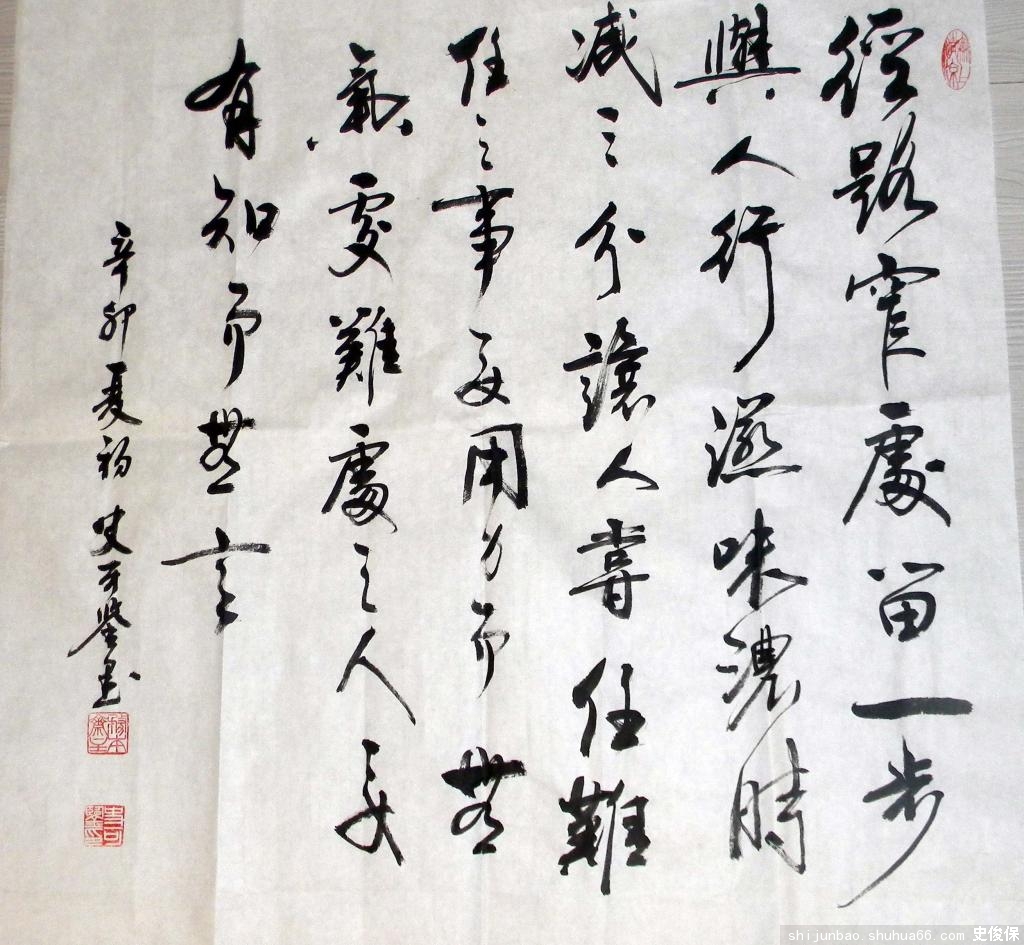 徑路窄處留一步
與人行滋味濃時
減三分讓人嘗任難
任之事要用力而無
氣處難處之人要
有知而無言
辛卯夏初 史可鑒书
shijunbao.shuhua66.com 史俊保